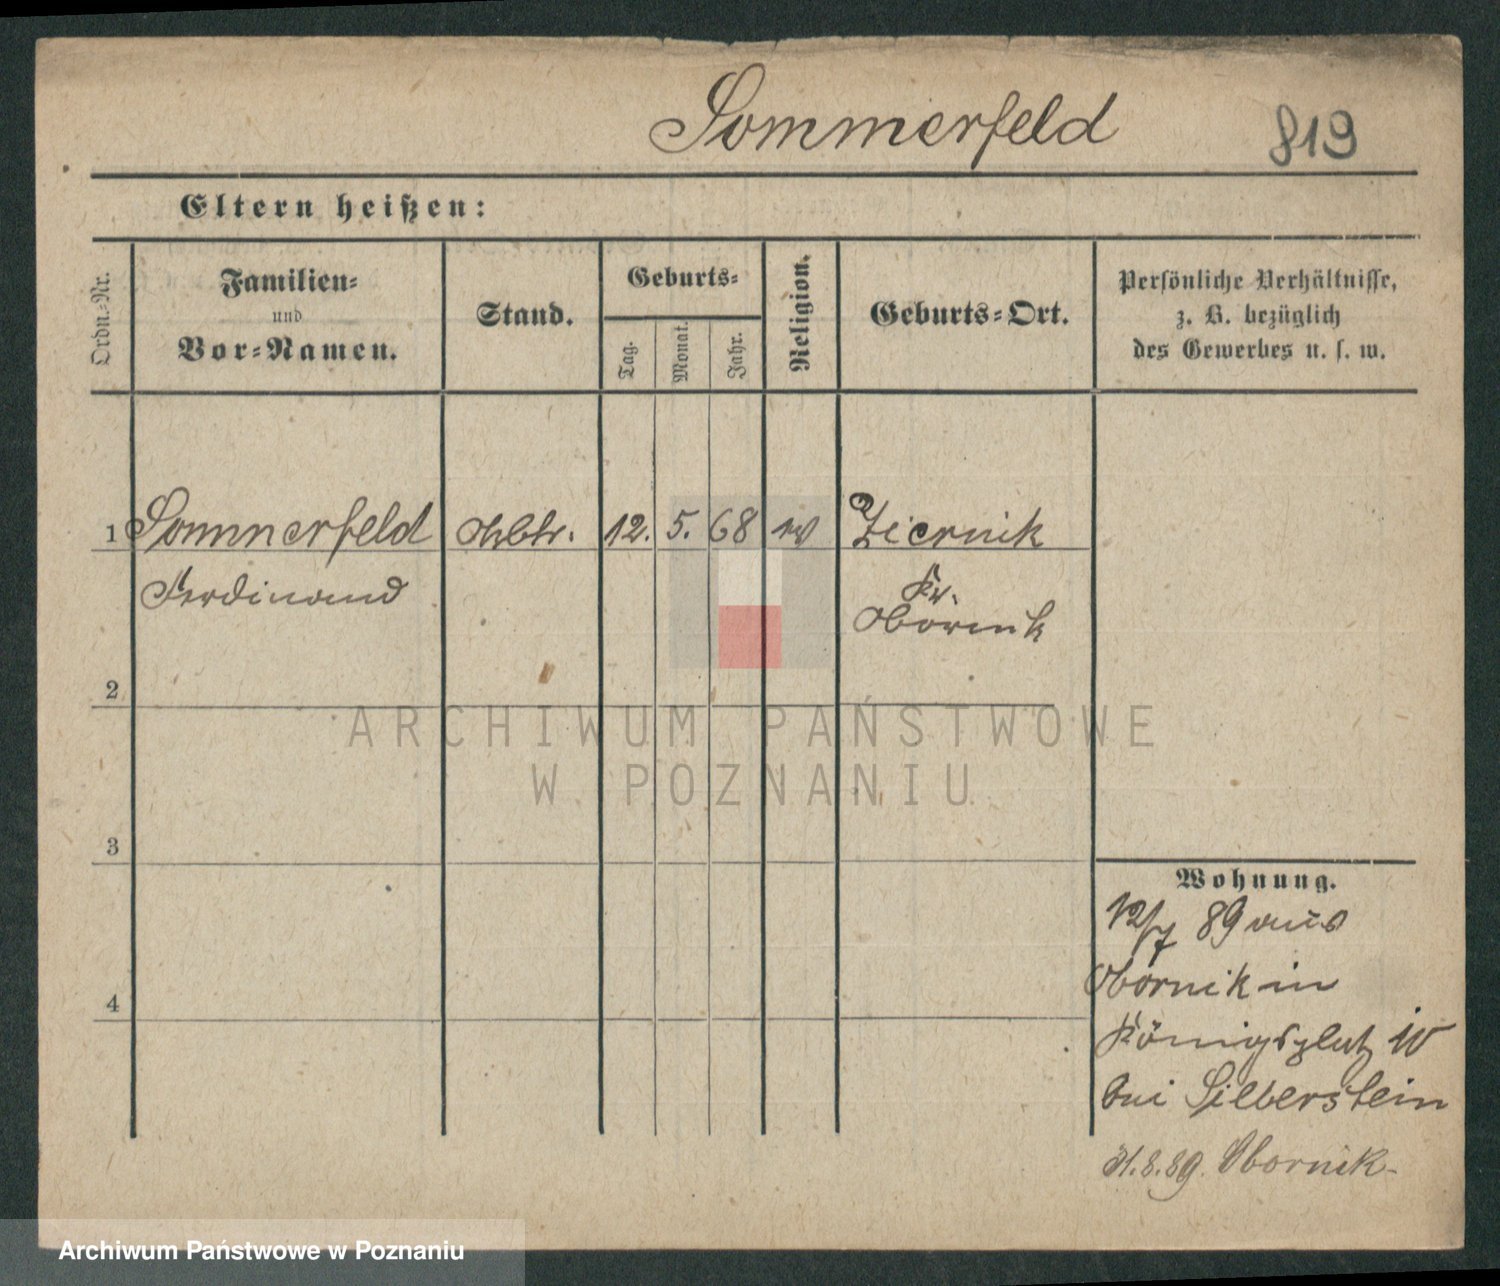 Sommerfeld
819
Eltern heißen:
Ordn.-Nr.
Familien-
und
Vor-Namen.
Stand.
Geburts-
Tag.
Monat.
Jahr.
Religion.
Geburts-Ort.
Persönliche Verhältnisse,
z. B. bezüglich
des Gewerbes u. s. w.
1 Sommerfeld 12. 5. 68 Ziernik
Ferdinand
Kr.
Obornik
2
3
4
ARCHIWUM PAŃSTWOWE
W POZNANIU
Wohnung.
12/7 89 aus
Obornik in
Königsplatz
bei Silberstein
31.8.89. Obornik
Archiwum Państwowe w Poznaniu